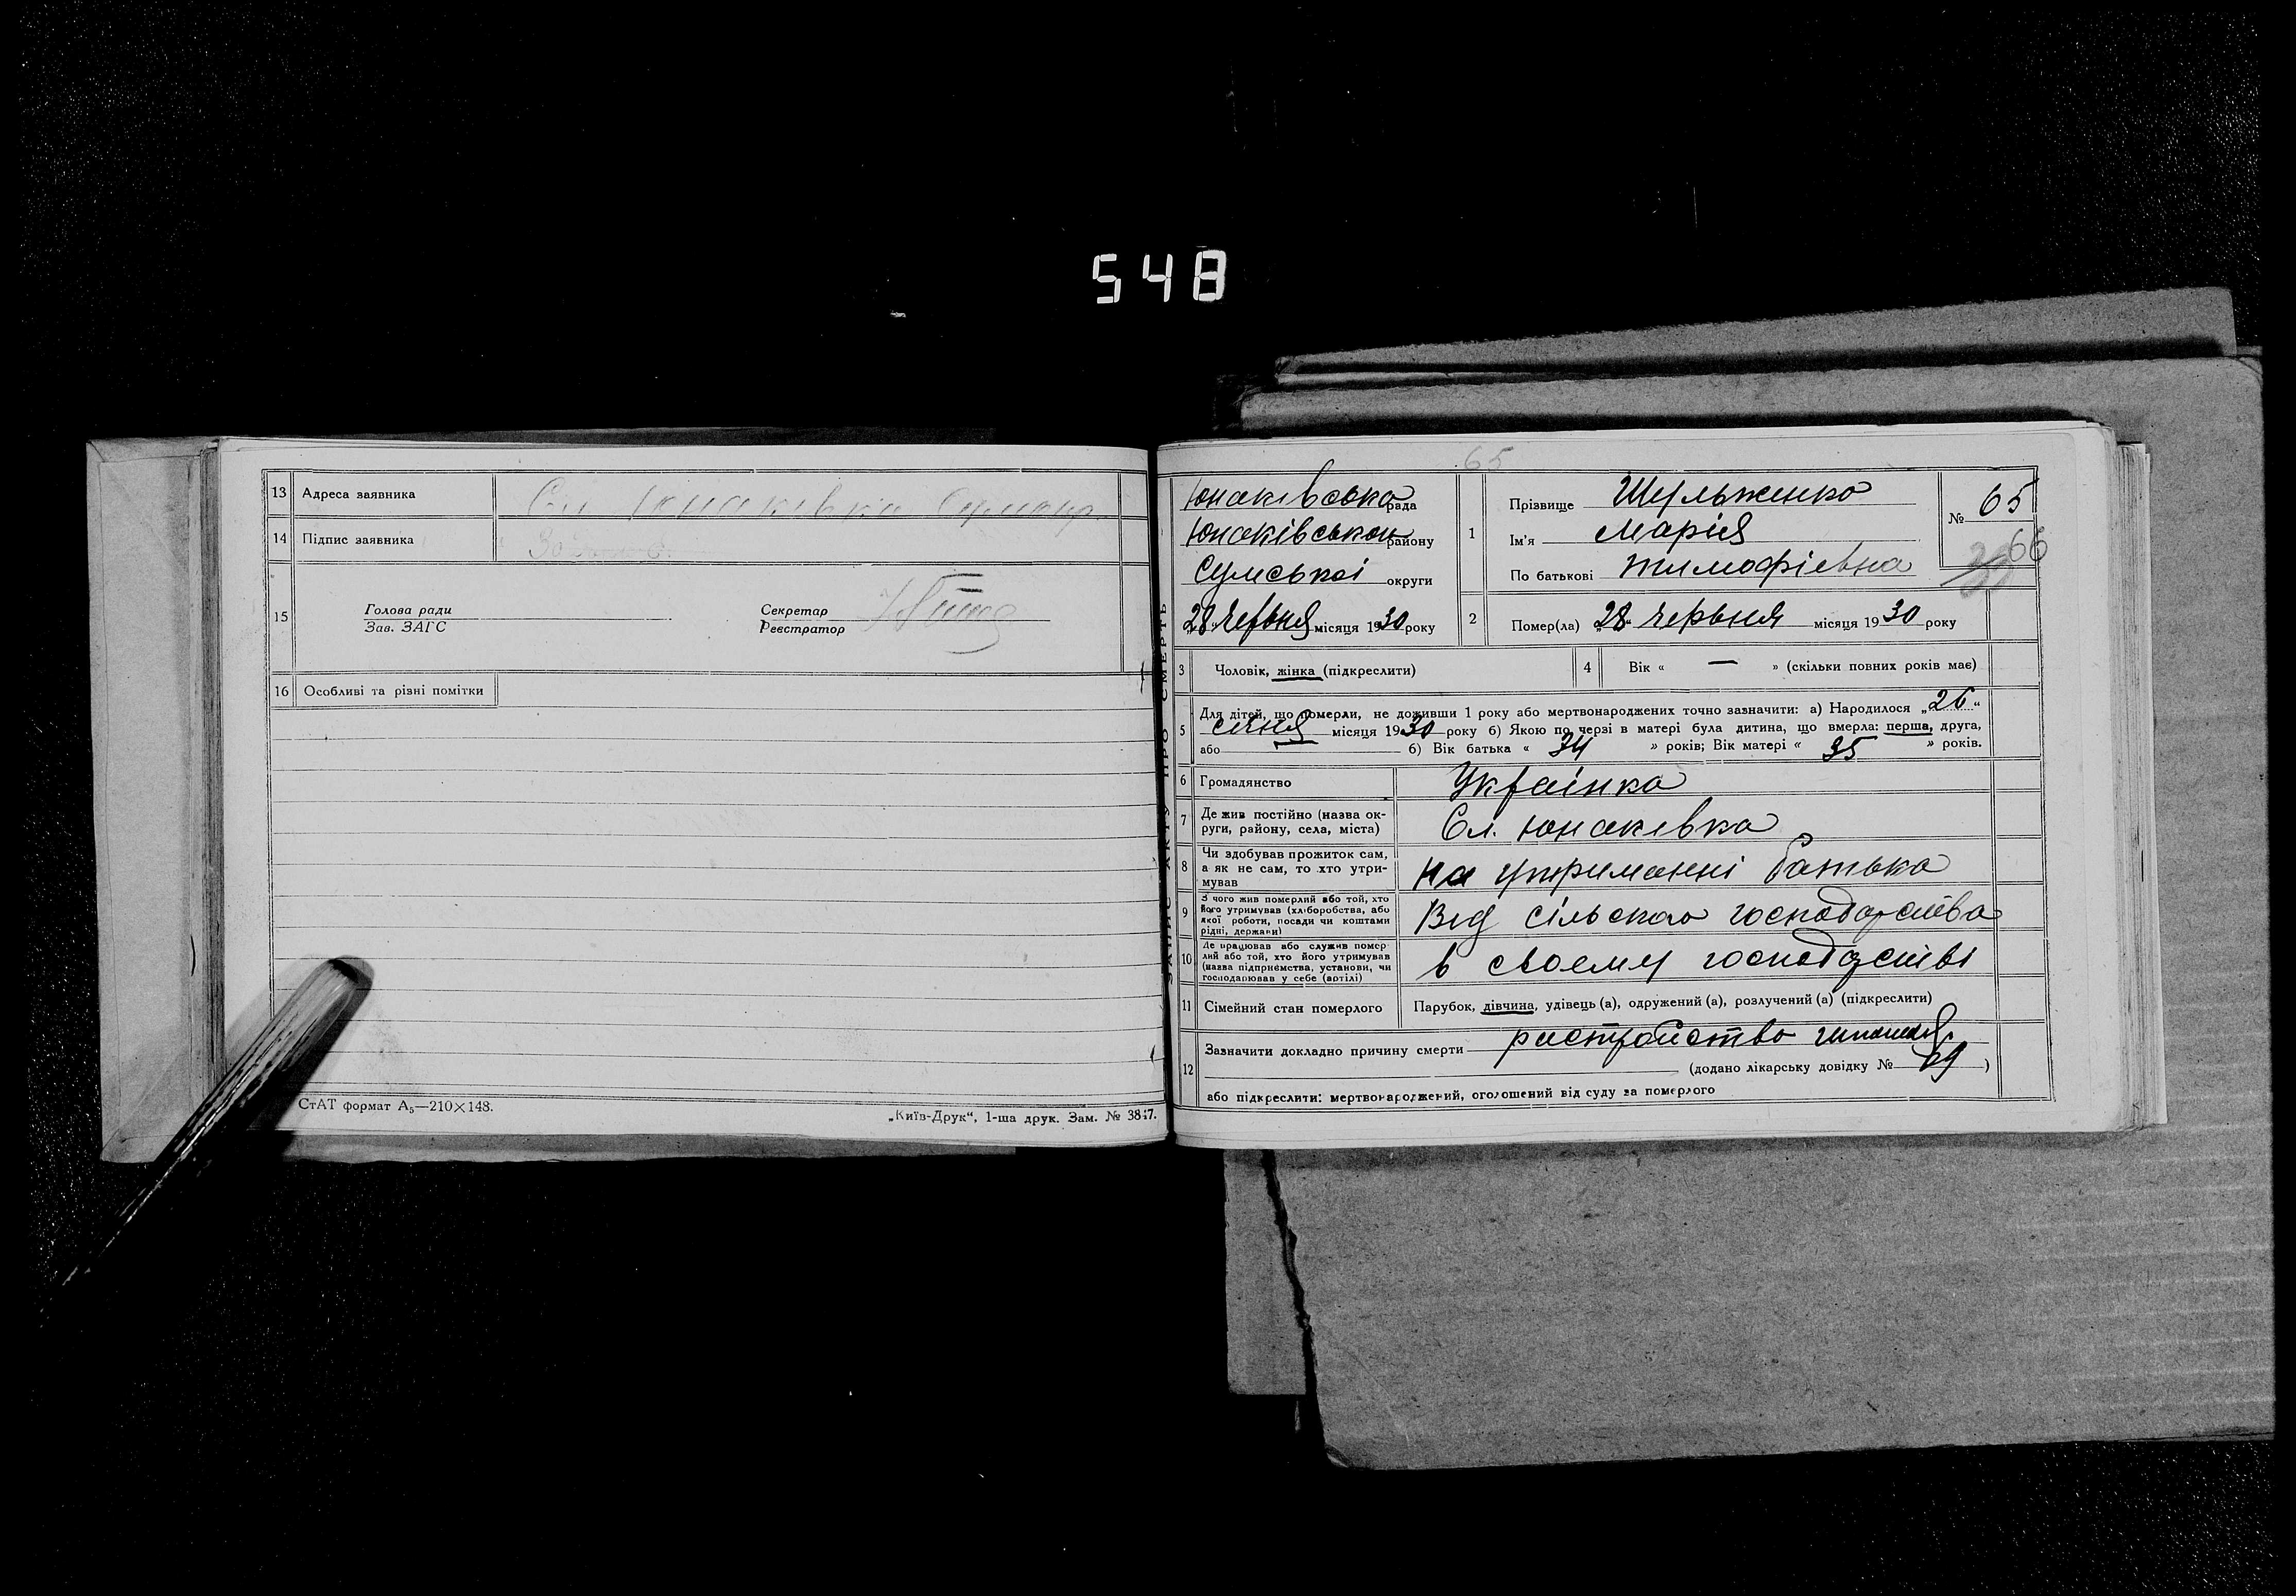 548
13 Адреса заявника Сл Юнаківка Сумокр.
14 Підпис заявника
15 Голова ради
Зав. ЗАГС
Секретар
Реєстратор
16 Особливі та різні помітки
СтАТ формат А₅—210×148.
„Київ-Друк“, 1-ша друк. Зам. № 3847.
65
ЗАПИС АКТУ ПРО СМЕРТЬ
Юнаківська рада
Юнаківськои району
Сумськоі округи
„28 Червня місяця 1930 року
1 Прізвище Шульженко
Ім'я Марія
По батькові Тимофієвна
№ 65
66
2 Помер(ла) „28“ червня місяця 1930 року
3 Чоловік, жінка (підкреслити)
4 Вік « — » (скільки повних років має)
5 Для дітей, що померли, не доживши 1 року або мертвонароджених точно зазначити: а) Народилося „26“
січня місяця 1930 року б) Якою по черзі в матері була дитина, що вмерла: перша, друга,
або б) Вік батька « 34 » років; Вік матері « 35 » років.
6 Громадянство Украінка
7 Де жив постійно (назва округи, району, села, міста) Сл. Юнаківка
8 Чи здобував прожиток сам, а як не сам, то хто утримував на утриманні батька
9 З чого жив померлий або той, хто його утримував (хліборобства, або якої роботи, посади чи коштами рідні, держави) Від сільского господарства
10 Де працював або служив померлий або той, хто його утримував (назва підприємства, установи, чи господарював у себе (артілі) в своєму господрстві
11 Сімейний стан померлого Парубок, дівчина, удівець (а), одружений (а), розлучений (а) (підкреслити)
12 Зазначити докладно причину смерти растройство
(додано лікарську довідку № )
або підкреслити: мертвонароджений, оголошений від суду за померлого